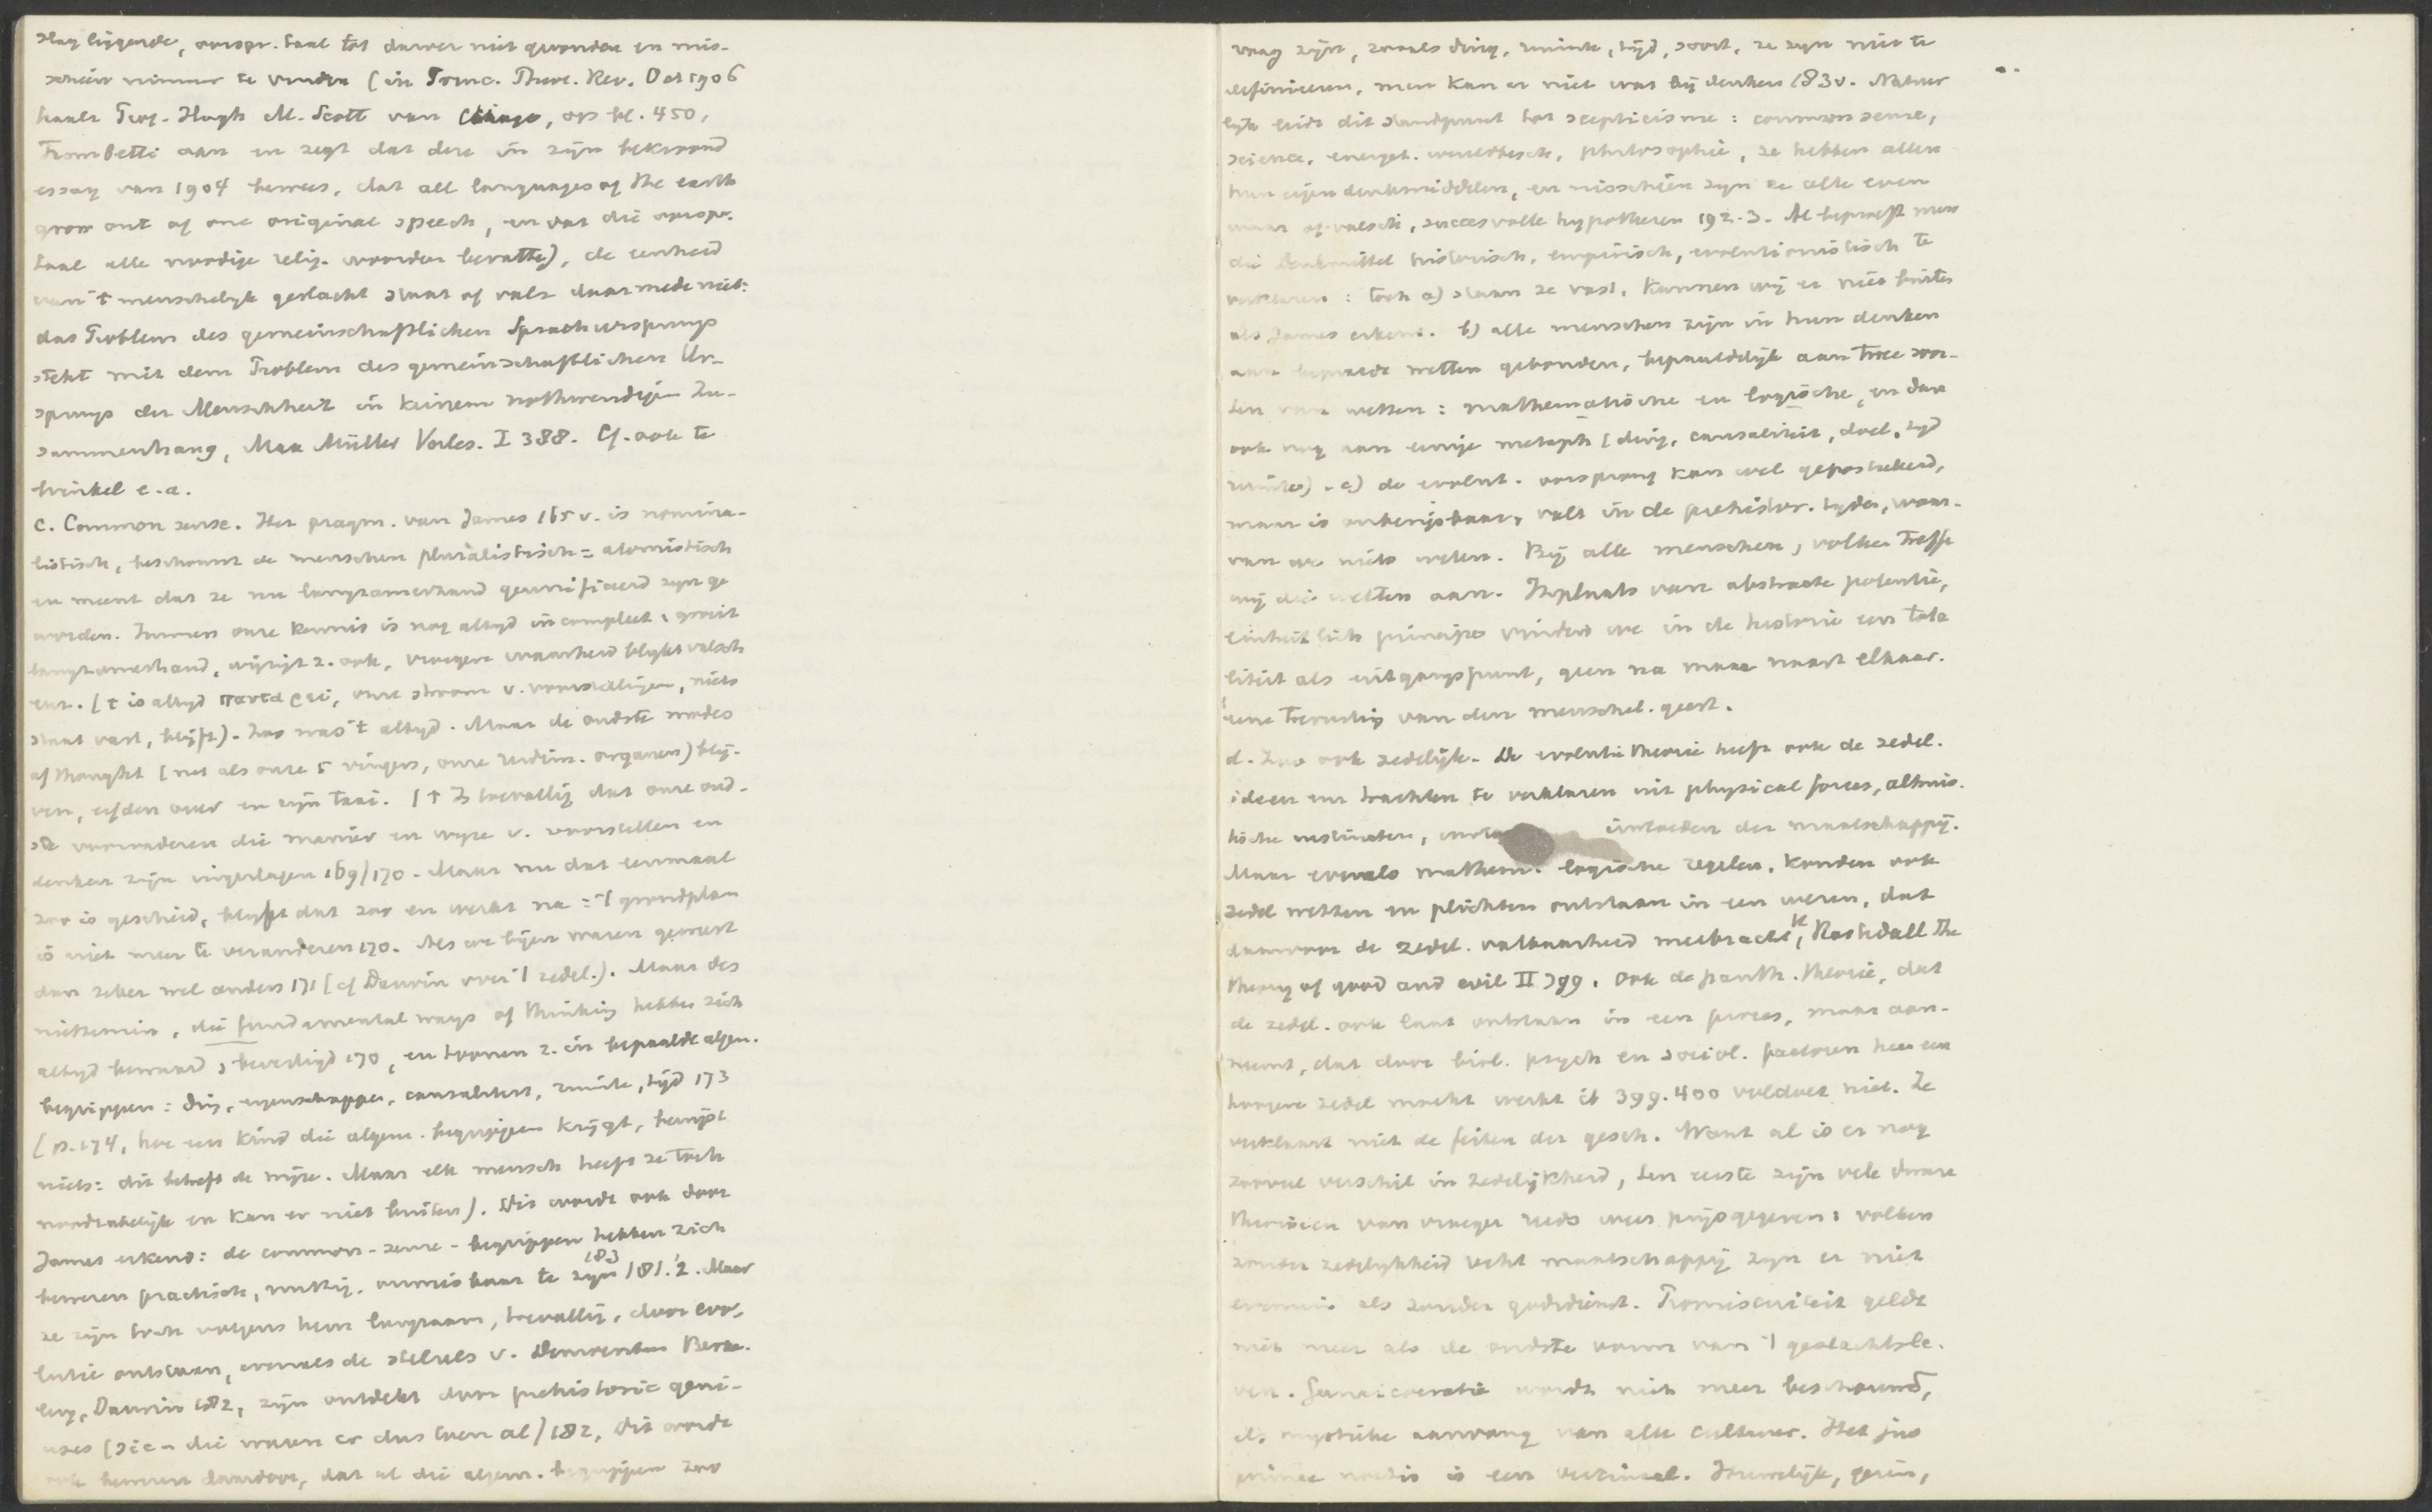 slag liggende, oorspr. taal tot dusver niet gevonden en mis-
schien nimmer te vinden (in Princ. Theol. Rev. Oct 1906
haalt Prof. Hugh M. Scott van Chicago, op bl. 450,
Trombetti aan en zegt dat deze in zijn bekroond
essay van 1904 bewees, dat all languages of the earth
grow out of one original speech, en dat die oorspr.
taal alle noodige relig. woorden bevatte), de eenheid
van 't menschelijk geslacht staat of valt daarmede niet:
das Problem des gemeinschaftlichen Sprachursprungs
steht mit dem Problem des gemeinschaftlichen Ur-
sprungs der Menschheit in keinem nothwendigen Zu-
sammenhang, Max Müller Vorles. I 388. Cf. ook te
Winkel e.a.
c. Common sense. Het pragm. van James 165 v. is nomina-
listisch, beschouwt de menschen pluralistisch = atomistisch
en meent dat ze nu langzamerhand geunificeerd zijn ge
worden. Immers onze kennis is nog altyd incompleet, groeit
langzamerhand, wijzigt z. ook, vroegere waarheid blykt valsch
enz. (t is altyd παντα ρει, onze stroom v. voorstellingen, niets
staat vast, blijft). Zoo was 't altyd. Maar de oudste modes
of thought (net als onze 5 vingers, onze rudim. organen) blij-
ven, erfden over en zijn taai. ('t Is toevallig dat onze oud-
ste voorvaderen die manier en wyze v. voorstellen en
denken zijn ingeslagen 169/170. Maar nu dat eenmaal
zoo is geschied, blyft dat zoo en werkt na: 't grondplan
is niet meer te veranderen 170. Als we bijen waren geweest
dan zeker wel anders 171 (cf Darwin over 't zedel.). Maar des
niettemin, die fundamental ways of thinking hebben zich
altyd bewaard, bevestigd 170, en toonen z. in bepaalde algem.
begrippen: ding, eigenschappen, causaliteit, ruimte, tijd 173
(p. 174, hoe een kind die algem. begrippen krijgt, bewijst
niets: dit betreft de wijze. Maar elk mensch heeft ze toch
noodzakelijk en kan er niet buiten). Dit wordt ook door
James erkend: de common-sense-begrippen hebben zich
183
bewezen practisch, nuttig, onmisbaar te zijn 181.2. Maar
ze zijn toch volgens hem langzaam, toevallig, door evo-
lutie ontstaan, evenals de stelsels v. Democritus Berke-
ley, Darwin 182, zijn ontdekt door prehistoric geni-
uses (sic - die waren er dus toen al) 182, dit wordt
ook bewezen daardoor, dat al die algem. begrippen zoo
vaag zijn, zooals ding, ruimte, tijd, soort, ze zijn niet te
definieeren, men kan er niet was bij denken 183 v. Natuur
lijk leidt dit standpunt tot scepticisme: common sense,
science, energet. philosophie, ze hebben allen
hun eigen denkmiddelen, en misschien zyn ze alle even
waar of valsch, succesvolle hypothesen 192.3. Al beproeft men
die Denkmittel historisch, empirisch, evolutionistisch te
verklaren: toch a) staan ze vast, kunnen wij er niet buiten
als James erkent. b) alle menschen zijn in hun denken
aan bepaalde wetten gebonden, bepaaldelijk aan twee soor-
ten van wetten: mathematische en logische, en dan
ook nog aan eenige metaph (ding, causaliteit, doel, tijd
ruimte). c) de evolut. oorsprong kan wel gepostuleerd,
maar is onbewijsbaar, valt in de prehistor. tijden, waar-
van we niets weten. Bij alle menschen, volken treffen
wij die wetten aan. Inplaats van abstracte potentie,
einheitlich principe vinden we in de historie een tota
liteit als uitgangspunt, geen na maar naast elkaar.
eene toerusting van den menschel. geest.
d. Zoo ook zedelijk. De evolutie theorie heeft ook de zedel.
ideen enz trachten te verklaren uit physical forces, altruis-
tische instincten, invloeden der maatschappij.
Maar evenals mathem. logische regelen, konden ook
zedel wetten en plichten ontstaan in een wezen, dat
daarvoor de zedel. vatbaarheid meebracht, Rashdall The
theory of good and evil II 399. Ook de panth. theorie, dat
de zedel. ook laat ontstaan in een proces, maar aan-
neemt, dat door biol. psych en sociol. factoren heen een
hoogere zedel macht werkt ib 399.400 voldoet niet. Ze
verklaart niet de feiten der gesch. Want al is er nog
zooveel verschil in zedelijkheid, ten eerste zijn vele dwaze
theorieen van vroeger reeds weer prijsgegeven: volken
zonder zedelijkheid recht maatschappij zijn er niet
evenmin als zonder godsdienst. Promiscuiteit geldt
niet meer als de oudste vorm van 't geslachtsle-
ven. Gynaicocratie wordt niet meer beschouwd,
als mystieke aanvang van alle cultuur. Het jus
primae noctis is een verzinsel. Huwelijk, gezin,